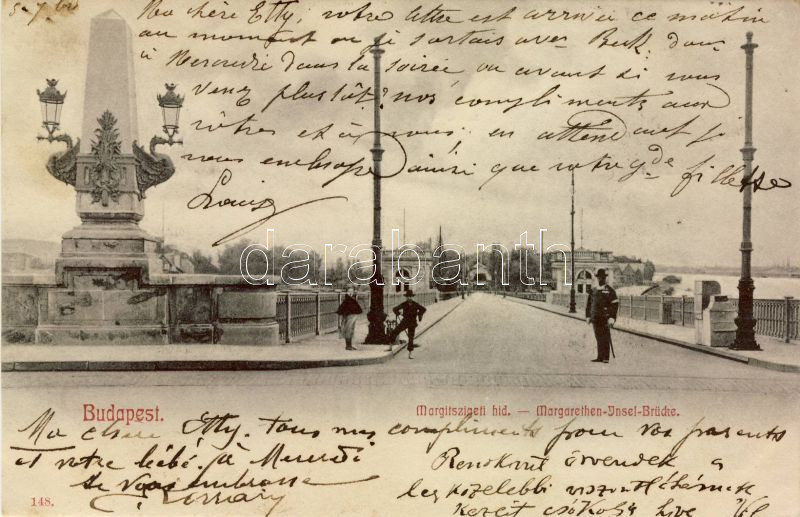 Ma chère Etty, votre lettre est arrivée ce matin
au moment ou je sortais avec Beck. donc
à Mercredi dans la soirée ou avant si vous
venez plustôt? nos compliments aux
vôtres et à vous, en attendant je
vous embrasse ainsi que votre gde fillette
Louise
darabanth
Budapest.
Margitszigeti híd. — Margarethen-Insel-Brücke.
Ma chère Etty. tous mes compliments pour vos parents
et votre bébé. à Mercredi
Je vous embrasse
örvendek a
legközelebbi viszontlátásnak
kezeit csókolja hive
148.